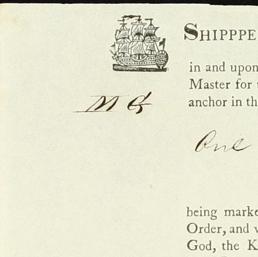 SHIPPPE
in and upon
Master for
anchor in th
M G
One
being marke
Order, and v
God, the K